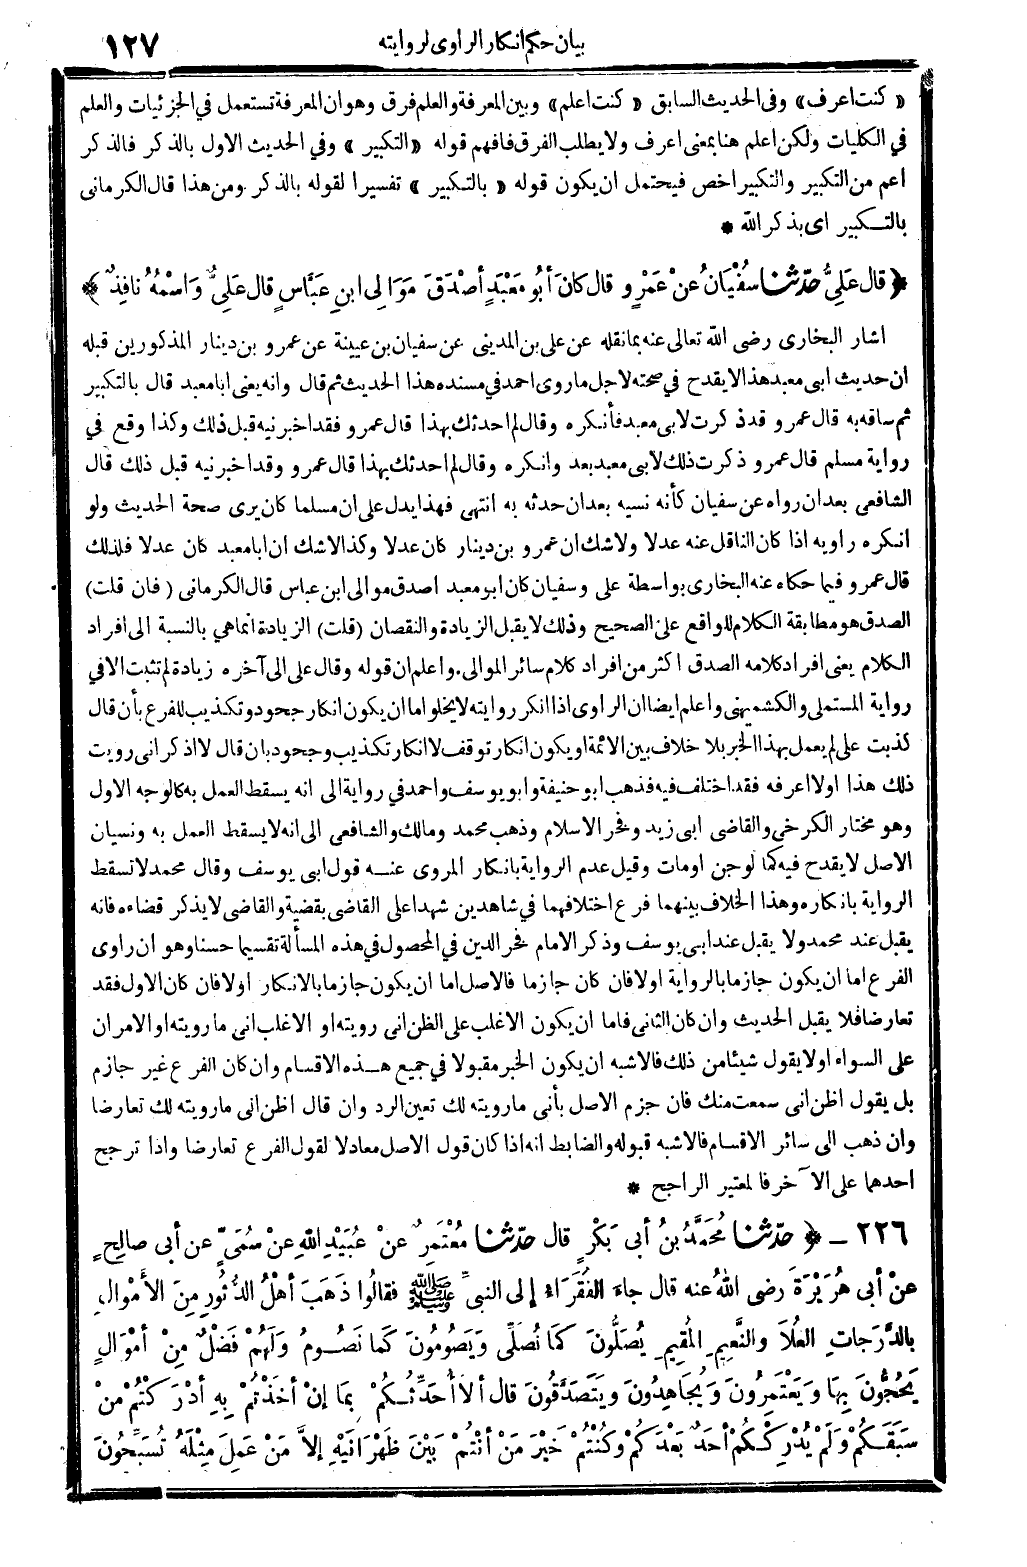 بيان حكم انكار الراوى لروايته
١٢٧
« كنت اعرف » وفى الحديث السابق « كنت اعلم » وبين المعرفة والعلم فرق وهو ان المعرفة تستعمل في الجزئيات والعلم
في الكليات ولكن اعلم هنا بمعنى اعرف ولا يطلب الفرق فافهم قوله « التكبير » وفي الحديث الاول بالذكر فالذكر
اعم من التكبير والتكبير اخص فيحتمل ان يكون قوله « بالتكبير » تفسيرا لقوله بالذكر ومن هذا قال الكرمانى
بالتكبير اى بذكر الله *
﴿ قال عَلِيٌّ حدّثنا سُفْيَانُ عنْ عَمْرٍو قال كانَ أَبُو مَعْبَدٍ أصْدَقَ مَوَالِى ابنِ عبَّاسٍ قال عَلِيٌّ وَاسْمُهُ نافِذٌ ﴾
اشار البخارى رضى الله تعالى عنه بما نقله عن على بن المدينى عن سفيان بن عيينة عن عمرو بن دينار المذكورين قبله
ان حديث ابى معبد هذا لا يقدح في صحته لاجل ما روى احمد في مسنده هذا الحديث ثم قال وانه يعنى ابا معبد قال بالتكبير
ثم ساقه به قال عمرو قد ذكرت لابى معبد فأنكره وقال لم احدثك بهذا قال عمرو فقد اخبرنيه قبل ذلك وكذا وقع في
رواية مسلم قال عمرو ذكرت ذلك لابى معبد بعد وانكره وقال لم احدثك بهذا قال عمرو وقد اخبرنيه قبل ذلك قال
الشافعى بعد ان رواه عن سفيان كأنه نسيه بعد ان حدثه به انتهى فهذا يدل على ان مسلما كان يرى صحة الحديث ولو
انكره راويه اذا كان الناقل عنه عدلا ولا شك ان عمرو بن دينار كان عدلا وكذا لا شك ان ابا معبد كان عدلا فلذلك
قال عمرو فيما حكاه عنه البخارى بواسطة على وسفيان كان ابو معبد اصدق موالى ابن عباس قال الكرمانى ( فان قلت )
الصدق هو مطابقة الكلام للواقع على الصحيح وذلك لا يقبل الزيادة والنقصان (قلت) الزيادة انما هي بالنسبة الى افراد
الكلام يعنى افراد كلامه الصدق اكثر من افراد كلام سائر الموالى . واعلم ان قوله وقال على الى آخره زيادة لم تثبت الا في
رواية المستملى والكشميهنى واعلم ايضا ان الراوى اذا انكر روايته لا يخلو اما ان يكون انكار جحود وتكذيب للفرع بأن قال
كذبت على لم يعمل بهذا الخبر بلا خلاف بين الائمة او يكون انكار توقف لا انكار تكذيب وجحود بان قال لا اذكر انى رويت
ذلك هذا او لا اعرفه فقد اختلف فيه فذهب ابو حنيفة وابو يوسف واحمد في رواية الى انه يسقط العمل به كالوجه الاول
وهو مختار الكرخى والقاضى ابى زيد وفخر الاسلام وذهب محمد ومالك والشافعى الى انه لا يسقط العمل به ونسيان
الاصل لا يقدح فيه كما لو جن او مات وقيل عدم الرواية بانكار المروى عنه قول ابى يوسف وقال محمد لا تسقط
الرواية بانكاره وهذا الخلاف بينهما فرع اختلافهما في شاهدين شهدا على القاضى بقضية والقاضى لا يذكر قضاءه فانه
يقبل عند محمد ولا يقبل عند ابى يوسف وذكر الامام فخر الدين في المحصول في هذه المسألة تقسيما حسنا وهو ان راوى
الفرع اما ان يكون جازما بالرواية اولا فان كان جازما فالاصل اما ان يكون جازما بالانكار اولا فان كان الاول فقد
تعارضا فلا يقبل الحديث وان كان الثانى فاما ان يكون الاغلب على الظن انى رويته او الاغلب انى ما رويته او الامران
على السواء اولا يقول شيئا من ذلك فالاشبه ان يكون الخبر مقبولا في جميع هذه الاقسام وان كان الفرع غير جازم
بل يقول اظن انى سمعت منك فان جزم الاصل بأنى ما رويته لك تعين الرد وان قال اظن انى ما رويته لك تعارضا
وان ذهب الى سائر الاقسام فالاشبه قبوله والضابط انه اذا كان قول الاصل معادلا لقول الفرع تعارضا واذا ترجح
احدهما على الآخر فالمعتبر الراجح *
٢٢٦ – ﴿ حدّثنا مُحَمَّدُ بنُ أبى بَكْرٍ قال حدّثنا مُعْتَمِرٌ عنْ عُبَيْدِ اللهِ عنْ سُمَىٍّ عن أبى صالحٍ
عنْ أبى هُرَيْرَةَ رضى اللهُ عنه قال جاءَ الفُقَرَاءُ إلى النبىِّ ﷺ فقالُوا ذَهَبَ أهْلُ الدُّثُورِ مِنَ الأَمْوالِ
بالدَّرَجاتِ العُلاَ والنَّعِيمِ المُقِيمِ يُصَلُّونَ كَمَا نُصَلِّى وَيَصُومُونَ كَمَا نَصُومُ وَلَهُمْ فَضْلٌ مِنْ أمْوَالٍ
يَحُجُّونَ بِهَا وَيَعْتَمِرُونَ وَيُجَاهِدُونَ وَيَتَصَدَّقُونَ قال ألاَ أُحَدِّثُكُمْ بِمَا إنْ أخَذْتُمْ بِهِ أدْرَكْتُمْ مَنْ
سَبَقَكُمْ وَلَمْ يُدْرِكْكُمْ أحَدٌ بَعْدَكُمْ وَكُنْتُمْ خَيْرَ مَنْ أنْتُمْ بَيْنَ ظَهْرَانَيْهِ إلاَّ مَنْ عَمِلَ مِثْلَهُ تُسَبِّحُونَ